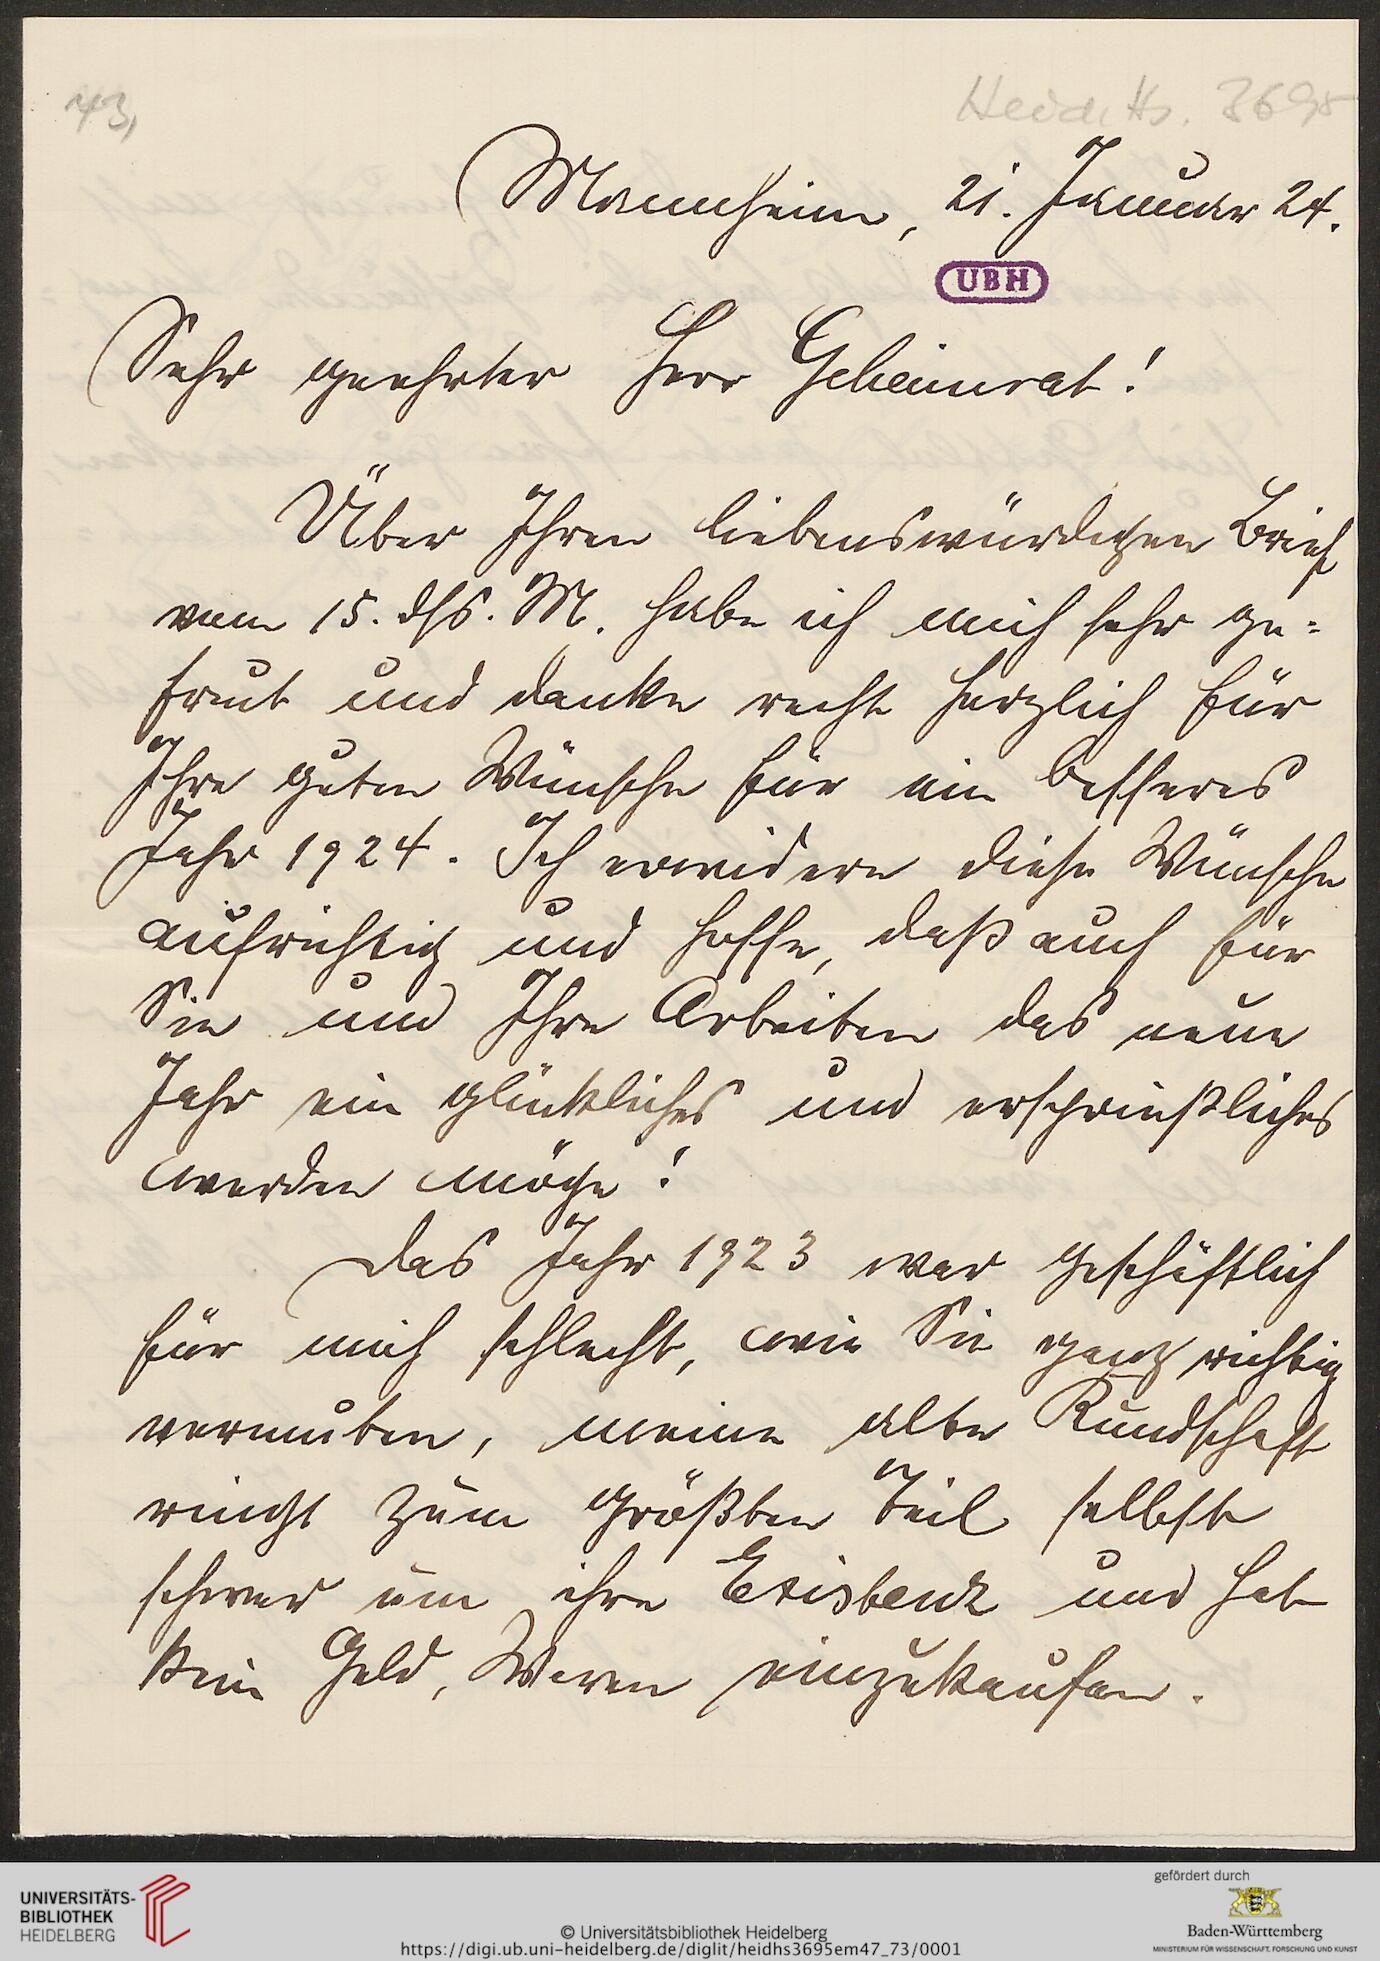 73,
Heid. Hs. 3695
Mannheim, 21. Januar 24.
UBH
Sehr geehrter Herr Geheimrat!
Über Ihren liebenswürdigen Brief
vom 15. dſs. M. habe ich mich sehr ge=
freut und danke recht herzlich für
Ihre guten Wünsche für ein besseres
Jahr 1924. Ich erwidere diese Wünsche
aufrichtig und hoffe, daß auch für
Sie und Ihre Arbeiten das neue
Jahr ein glückliches und ersprießliches
werden möge!
Das Jahr 1923 war geschäftlich
für mich schlecht, wie Sie ganz richtig
vermuten, meine alte Kundschaft
ringt zum größten Teil selbst
schwer um ihre Existenz und hat
kein Geld, Waren einzukaufen.
UNIVERSITÄTS-
BIBLIOTHEK
HEIDELBERG
© Universitätsbibliothek Heidelberg
https://digi.ub.uni-heidelberg.de/diglit/heidhs3695em47_73/0001
gefördert durch
Baden-Württemberg
MINISTERIUM FÜR WISSENSCHAFT, FORSCHUNG UND KUNST